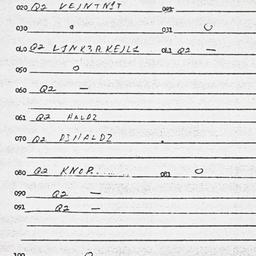 020 Q2 VEJNTN1T 021
030 0 031 0
040 Q2 L1NK3RKEJL1 041 Q2 —
050 0
060 Q2 —
061 Q2 HALDZ
070 Q2 D3HALDZ
080 Q2 KNOP.. 081 0
090 Q2 —
091 Q2 —
100 0